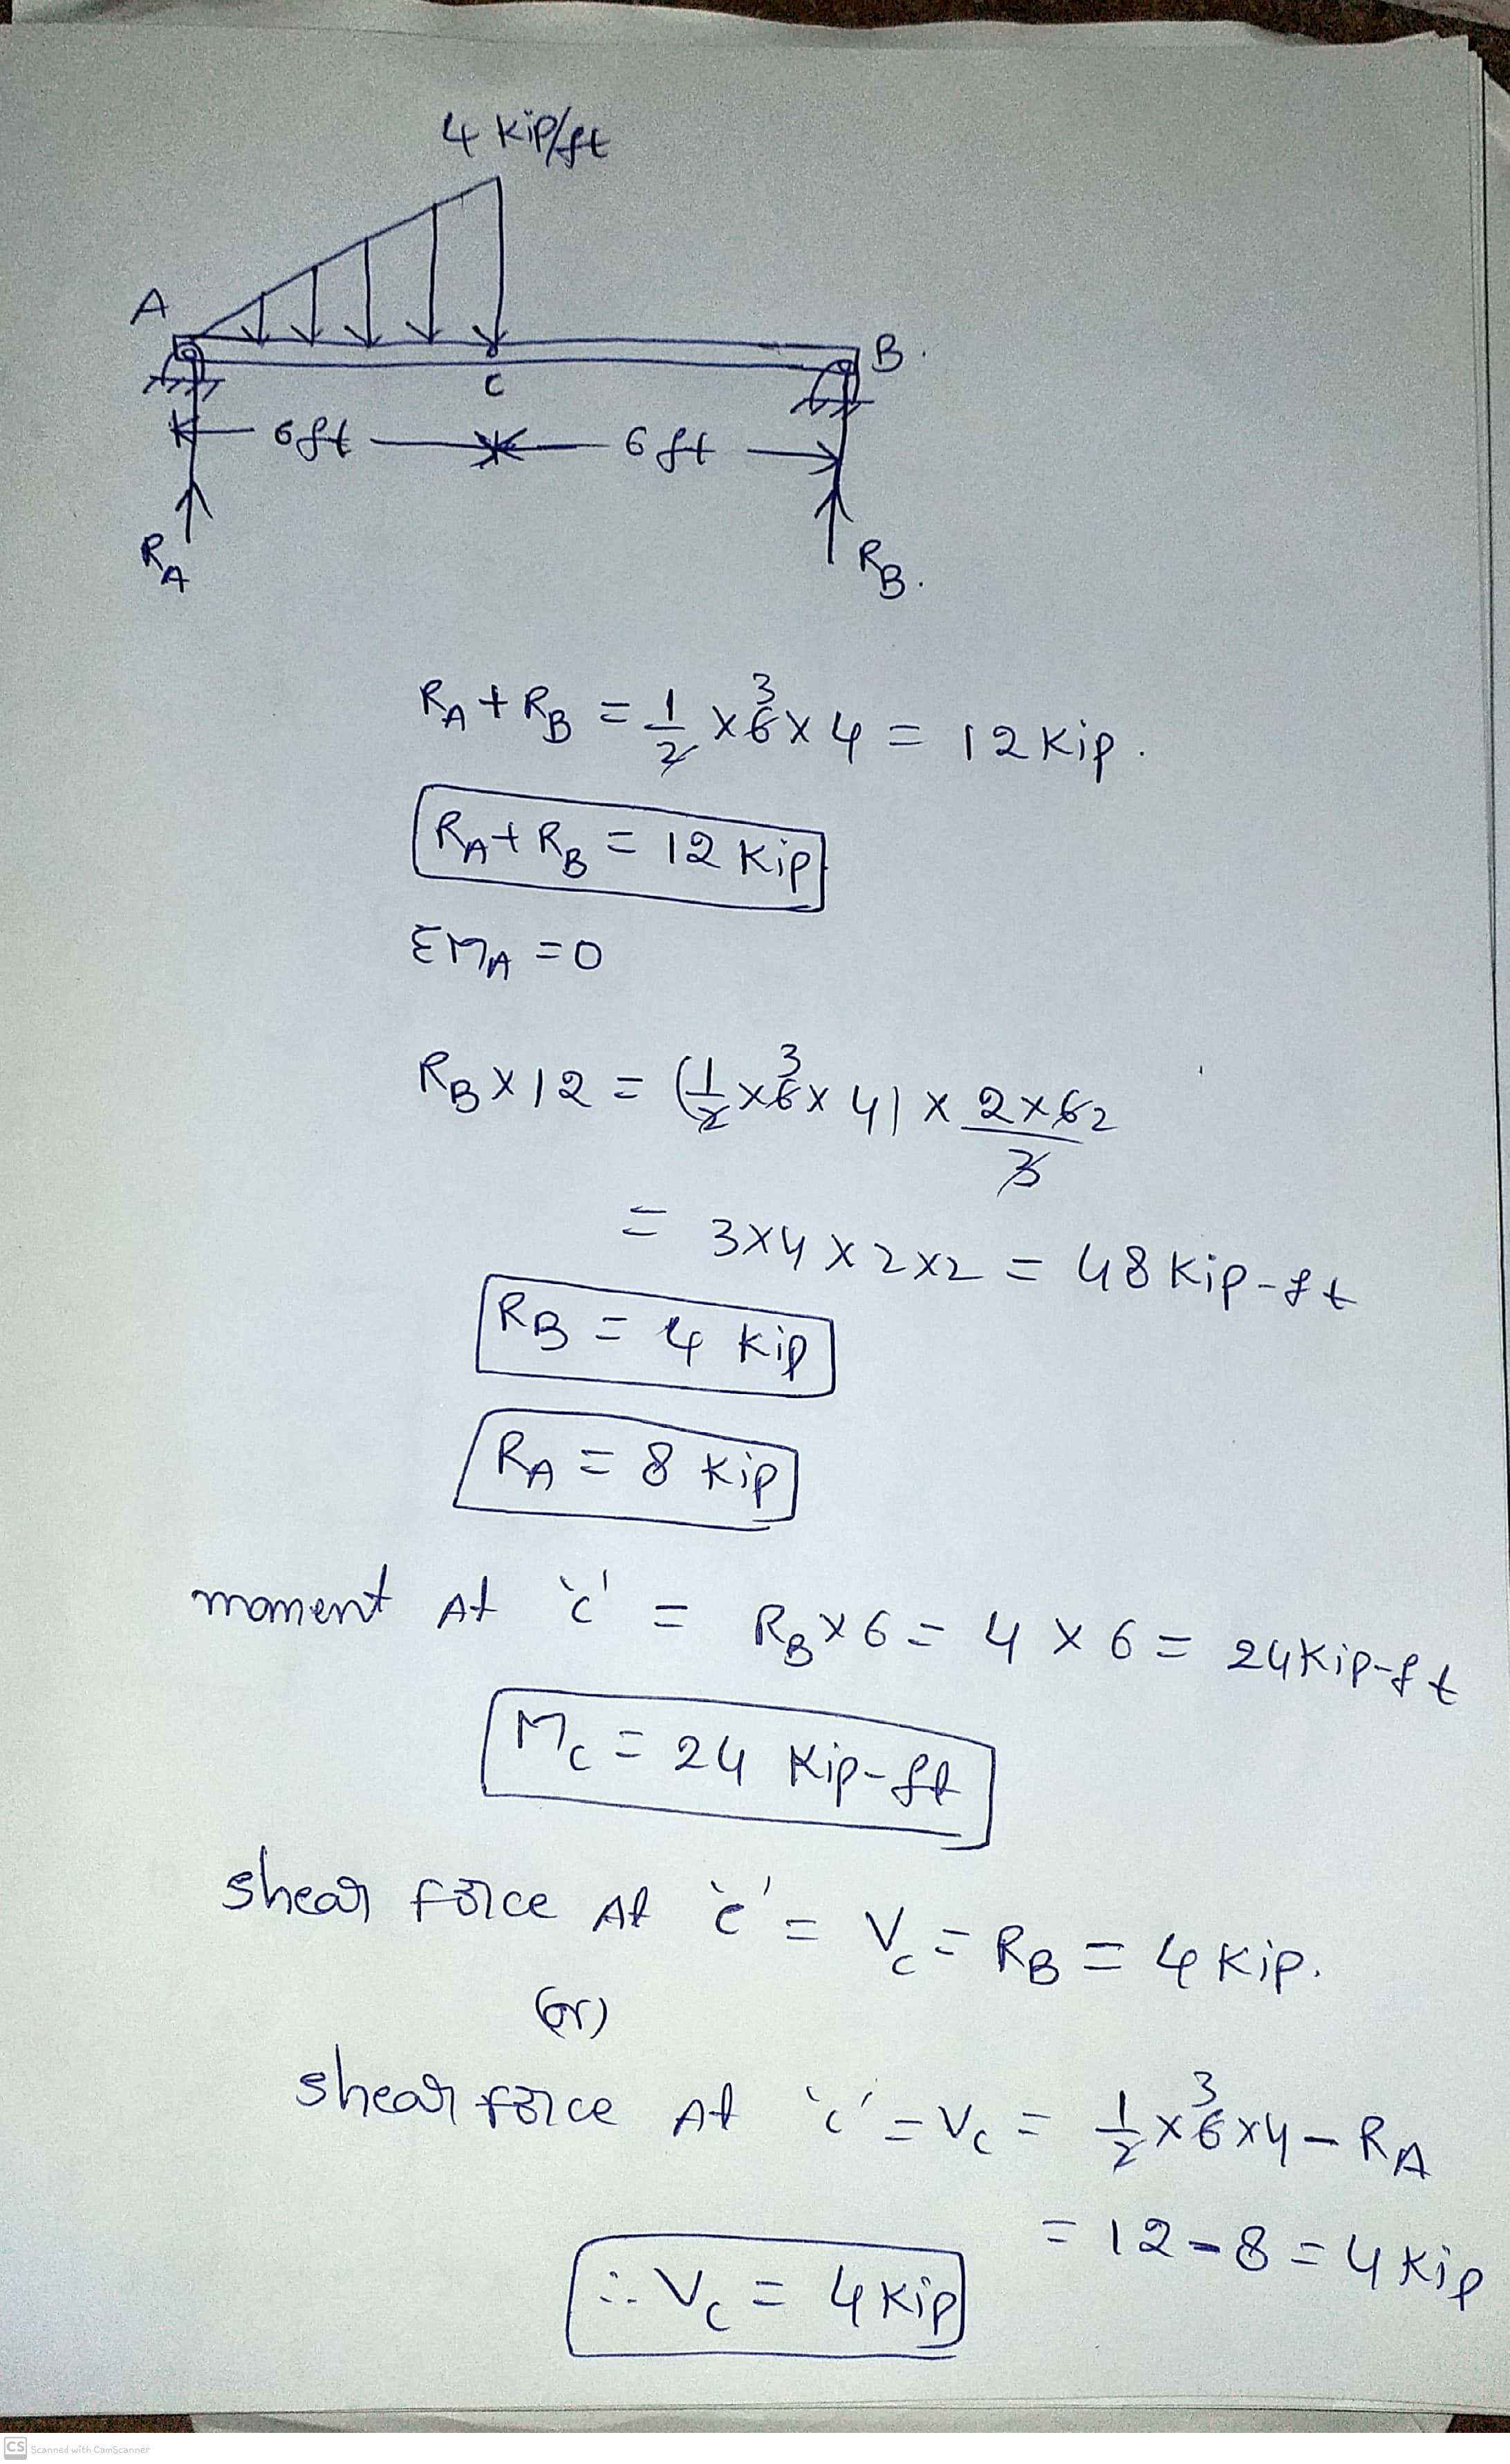 4 kip/ft
A
B.
C
6ft
6 ft
RA
RB.
RA + RB = 1/2 × 6 3 × 4 = 12 kip.
RA + RB = 12 kip
ΣMA = 0
RB × 12 = (1/2 × 6 3 × 4) × 2×6 2/3
= 3×4 × 2×2 = 48 kip-ft
RB = 4 kip
RA = 8 kip
moment At 'c' = RB × 6 = 4 × 6 = 24 kip-ft
Mc = 24 kip-ft
shear force At 'c' = Vc = RB = 4 kip.
(or)
shear force At 'c' = Vc = 1/2 × 6 3 × 4 - RA
= 12 - 8 = 4 kip
∴ Vc = 4 kip
CS Scanned with CamScanner